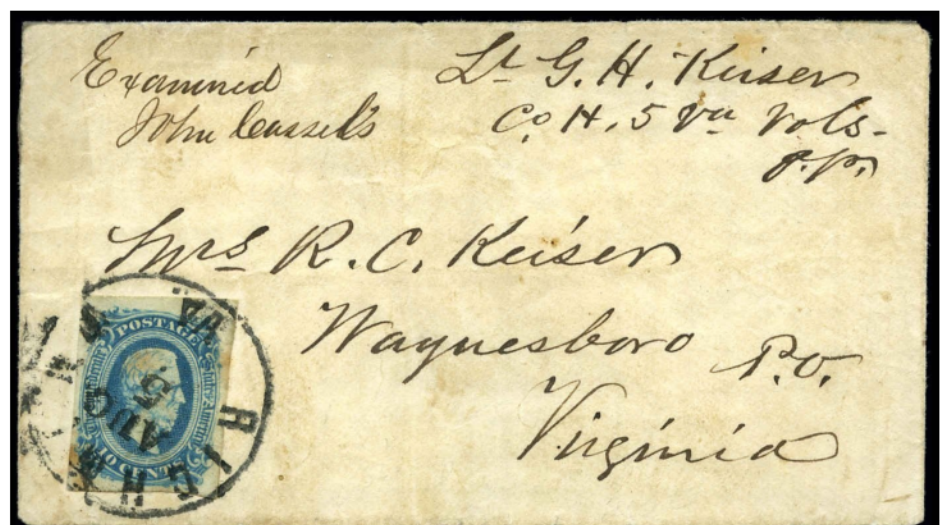 Examined
John Cassels
Lt G. H. Keiser
Co H. 5 Va Vols-
P.P.
Mrs R. C. Keiser
Waynesboro P.O.
Virginia
POSTAGE
AUG 5
VA.
RICH